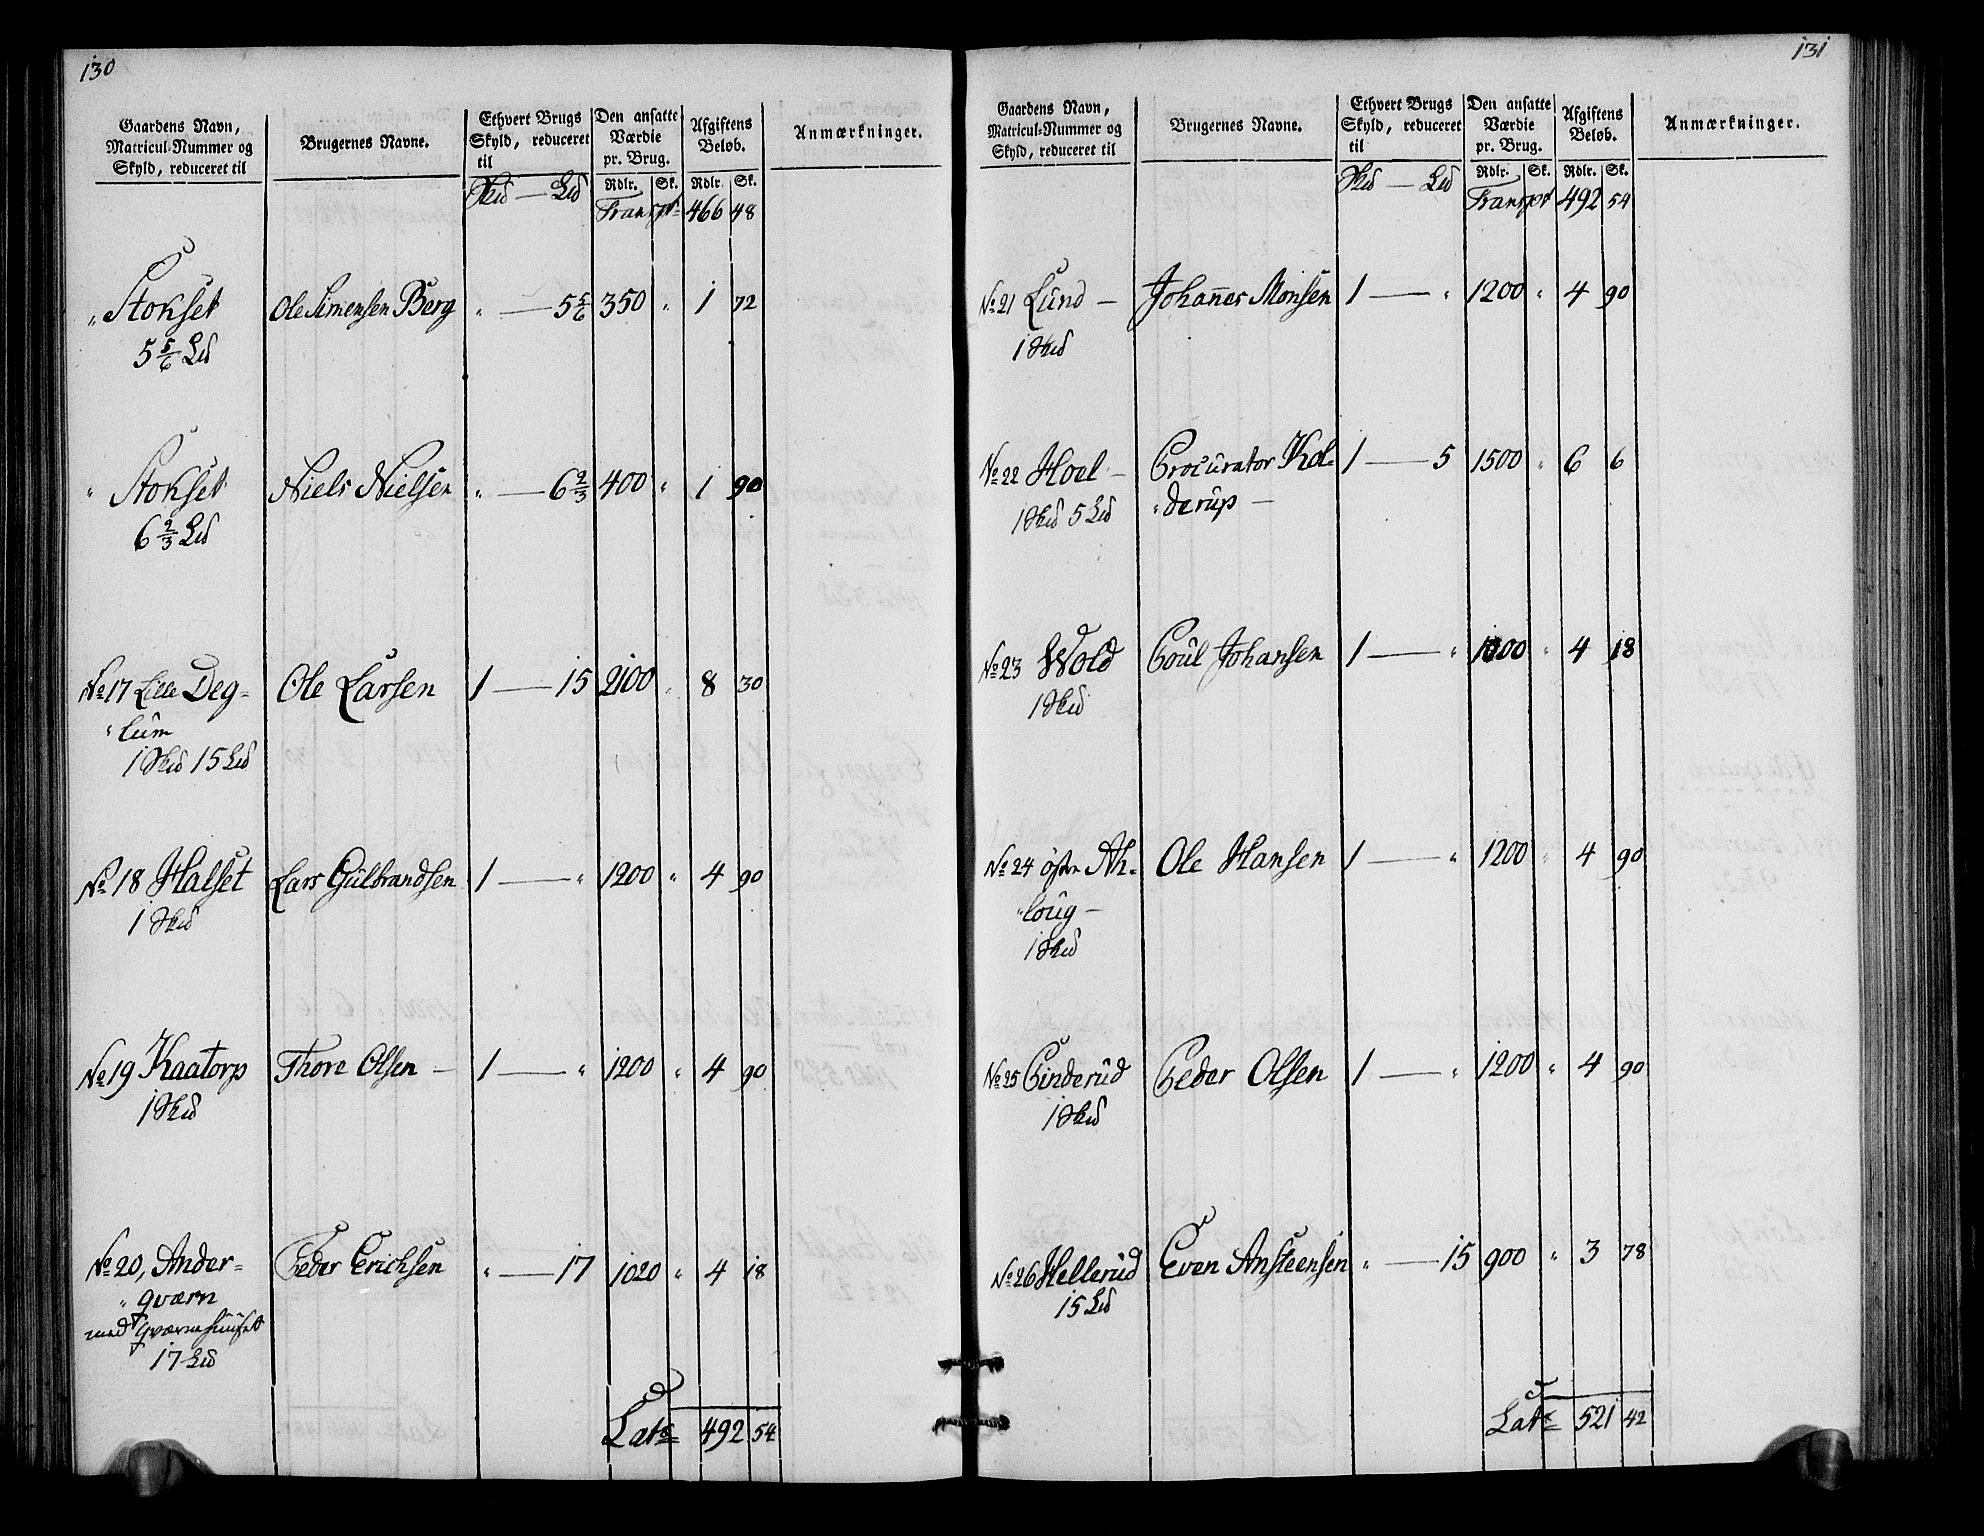 130
Gaardens Navn, Matricul-Nummer og Skyld, reduceret til | Brugernes Navne. | Ethvert Brugs Skyld, reduceret til | Den ansatte Værdie pr. Brug. | Afgiftens Beløb. | Anmærkninger.
Skd — Ld | Rdlr. | Sk. | Rdlr. | Sk.
Transpt 466 48
" Stokset | Ole Simensen Berg | " — 5 5/6 | 350 | " | 1 | 72
5 5/6 Ld
" Stokset | Niels Nielsen | " — 6 2/3 | 400 | " | 1 | 90
6 2/3 Ld
No 17 Lille Deg= | Ole Larsen | 1 — 15 | 2100 | " | 8 | 30
"lum
1 Skd 15 Ld
No 18 Halset | Lars Gulbrandsen | 1 — " | 1200 | " | 4 | 90
1 Skd
No 19 Kaatorp | Thore Olsen — | 1 — " | 1200 | " | 4 | 90
1 Skd
No 20, Ander= | Peder Erichsen | " — 17 | 1020 | " | 4 | 18
" qværn
med
17 Ld
Lats 492 54
131
Gaardens Navn, Matricul-Nummer og Skyld, reduceret til | Brugernes Navne. | Ethvert Brugs Skyld, reduceret til | Den ansatte Værdie pr. Brug. | Afgiftens Beløb. | Anmærkninger.
Skd — Ld | Rdlr. | Sk. | Rdlr. | Sk.
Transpt 492 54
No 21 Lund — | Johannes Monsen | 1 — " | 1200 | " | 4 | 90
1 Skd
No 22 Hoel — | Procurator Kol= | 1 — 5 | 1500 | " | 6 | 6
1 Skd 5 Ld | "derup —
No 23 Wold | Poul Johansen | 1 — " | | " | 4 | 18
1 Skd
No 24 Østre Ah= | Ole Hansen | 1 — " | 1200 | " | 4 | 90
"loug —
1 Skd
No 25 Pinderud | Peder Olsen | 1 — " | 1200 | " | 4 | 90
1 Skd
No 26 Hellerud | Even Ansteensen | " — 15 | 900 | " | 3 | 78
15 Ld
Lats 521 42